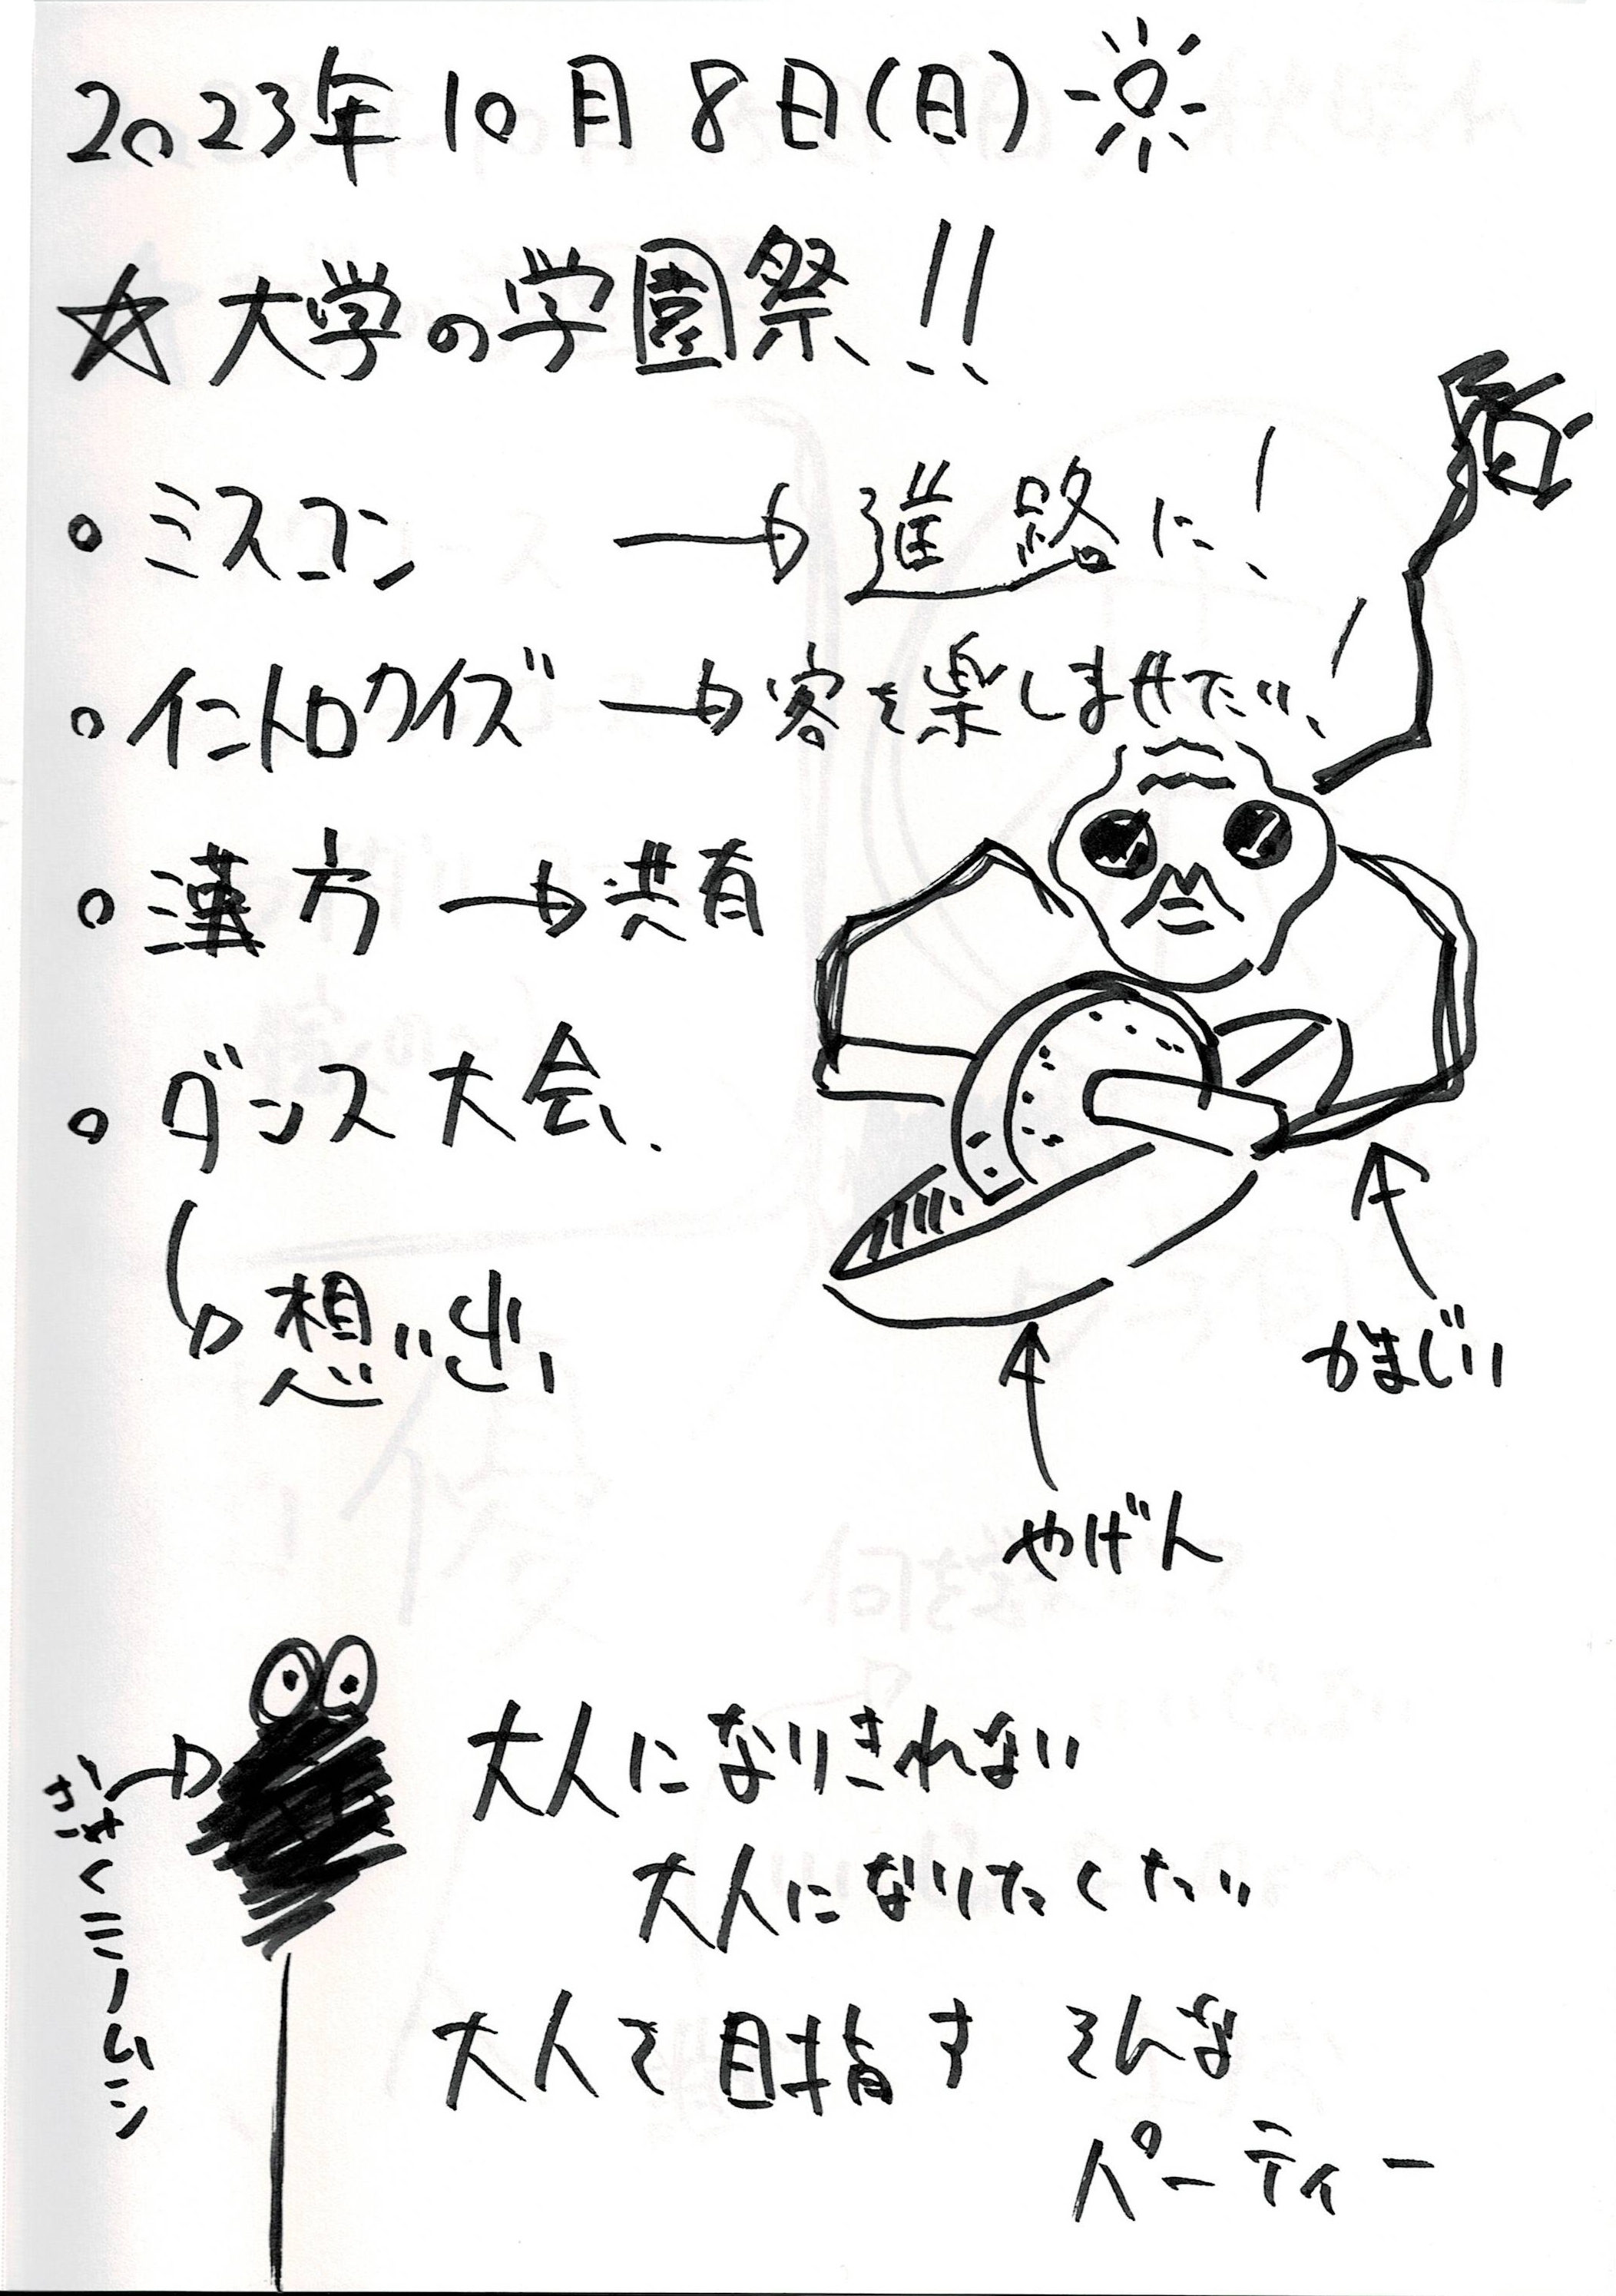 2023年10月8日(日)
☆大学の学園祭!!
。ミスコン → 進路に!
。イントロクイズ → 客を楽しませたい!
。漢方 → 共有
。ダンス大会
→ 想い出
かまじい
やげん
大人になりきれない
大人になりたくない
大人を目指す そんな
パーティー